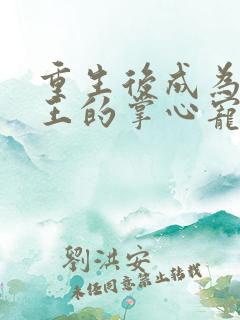 重生後成為
王的掌心寵
劉洪安
未经同意禁止转载